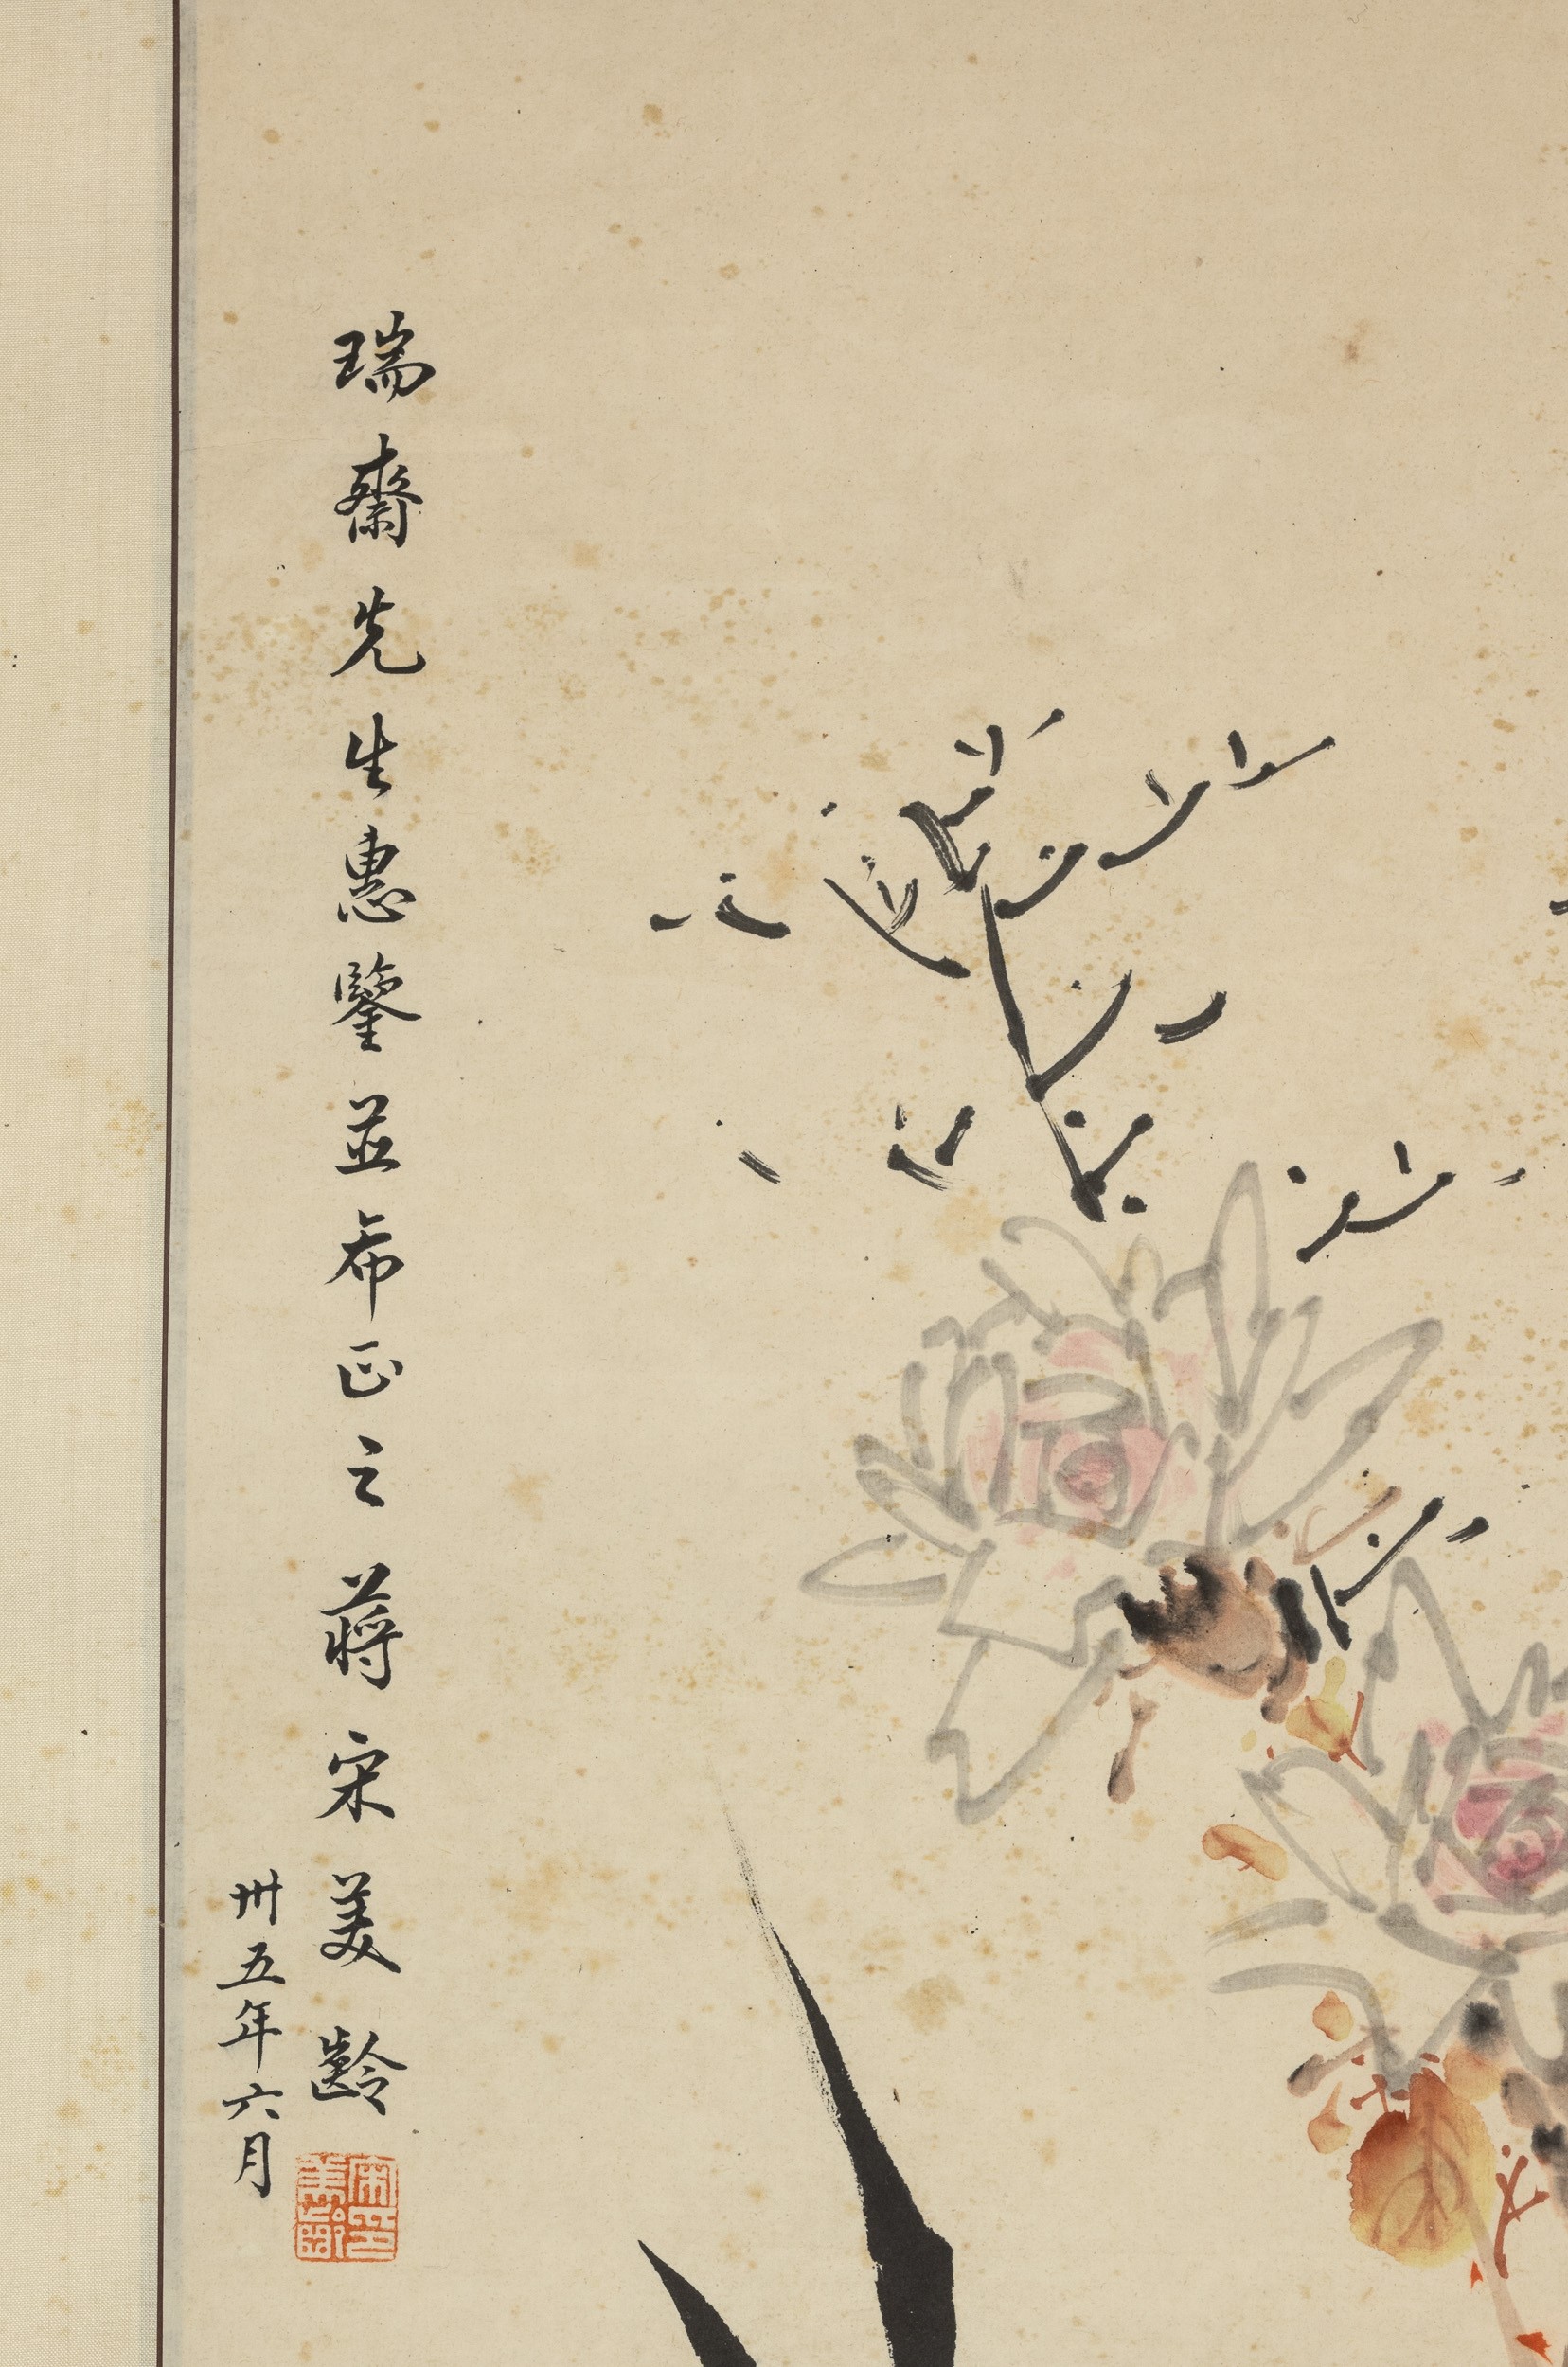 瑞齋先生惠鑒並希正之 蔣宋美齡
卅五年六月
宋美齡印